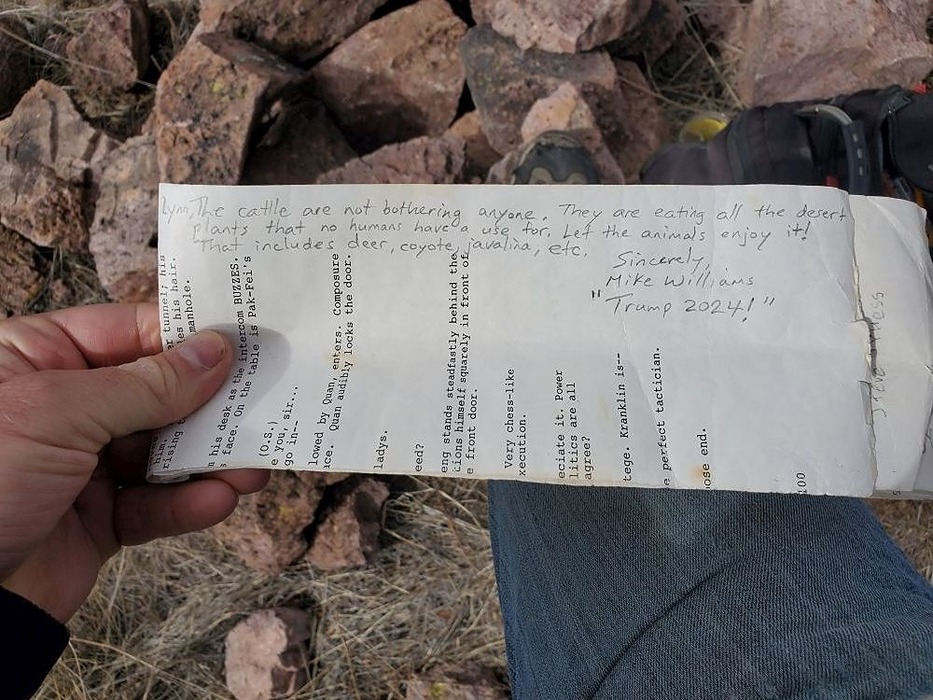 Lynn, The cattle are not bothering anyone. They are eating all the desert
plants that no humans have a use for. Let the animals enjoy it!
That includes deer, coyote, javalina, etc.
Sincerely,
Mike Williams
"Trump 2024!"
er tunnel; his
es his hair.
manhole.
him.
rising
n his desk as the intercom BUZZES.
s face. On the table is Pak-Fei's
(O.S.)
e you, sir...
go in--
lowed by Quan, enters. Composure
ace. Quan audibly locks the door.
ladys.
eed?
eng stands steadfastly behind the
tions himself squarely in front of
e front door.
Very chess-like
xecution.
eciate it. Power
litics are all
agree?
tege. Kranklin is--
e perfect tactician.
pose end.
100